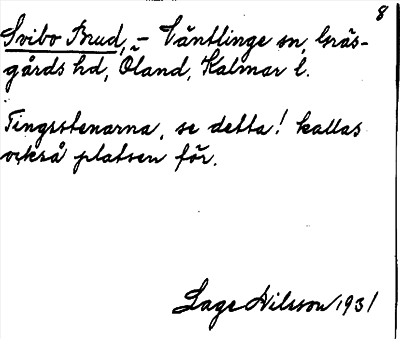 8
Svibo Brud, - Ventlinge sn, Gräs-
gårds hd, Öland, Kalmar l.
Tingsstenarna, se detta! kallas
också platsen för.
Lage Nilsson 1931